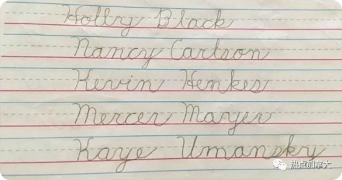 Holly Black
Nancy Carlson
Kevin Henkes
Mercer Mayer
Kaye Umansky